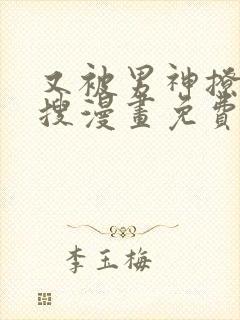 又被男神撩
搜漫畫免費
李玉梅